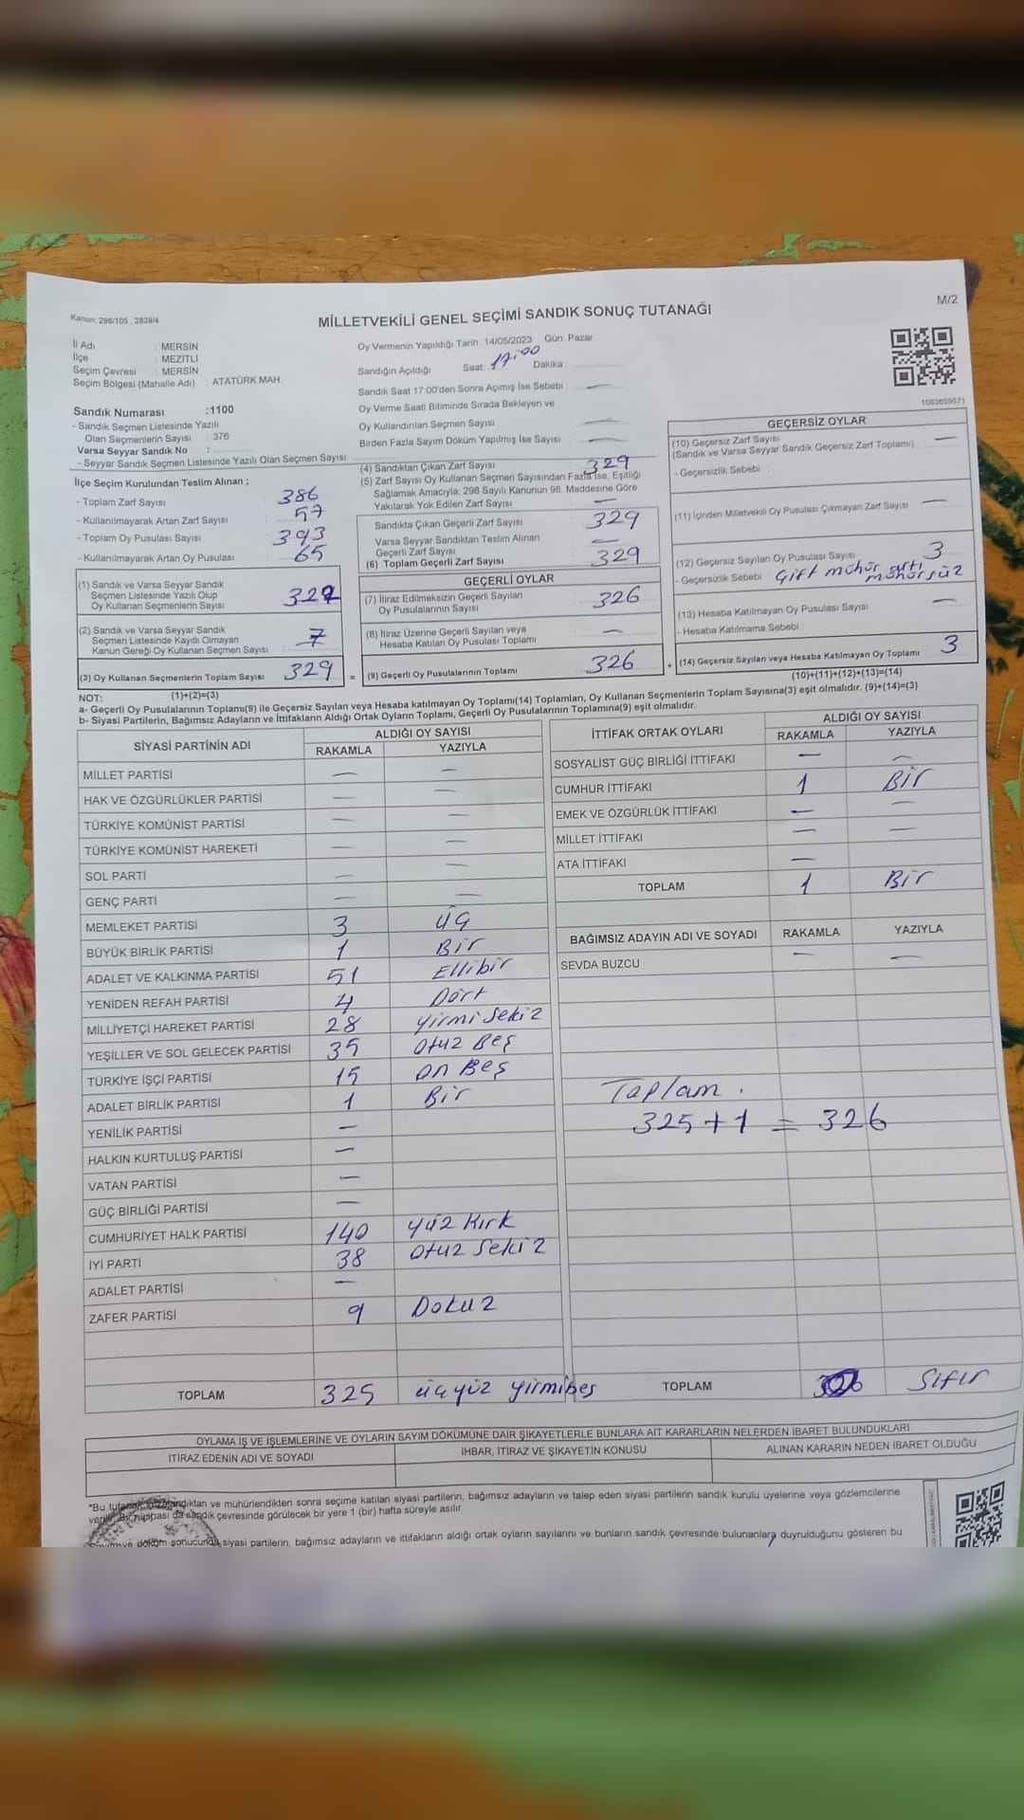 Kanun: 298/105 , 2839/4
MİLLETVEKİLİ GENEL SEÇİMİ SANDIK SONUÇ TUTANAĞI
M/2
İl Adı : MERSİN
İlçe : MEZİTLİ
Seçim Çevresi : MERSİN
Seçim Bölgesi (Mahalle Adı) : ATATÜRK MAH.
Sandık Numarası :1100
- Sandık Seçmen Listesinde Yazılı
Olan Seçmenlerin Sayısı : 376
Varsa Seyyar Sandık No :
- Seyyar Sandık Seçmen Listesinde Yazılı Olan Seçmen Sayısı
Oy Vermenin Yapıldığı Tarih : 14/05/2023 Gün: Pazar
Sandığın Açıldığı Saat: 17:00 Dakika
Sandık Saat 17:00'den Sonra Açılmış İse Sebebi —
Oy Verme Saati Bitiminde Sırada Bekleyen ve
Oy Kullandırılan Seçmen Sayısı —
Birden Fazla Sayım Döküm Yapılmış İse Sayısı —
İlçe Seçim Kurulundan Teslim Alınan ;
- Toplam Zarf Sayısı 386
- Kullanılmayarak Artan Zarf Sayısı 57
- Toplam Oy Pusulası Sayısı 393
- Kullanılmayarak Artan Oy Pusulası 65
(1) Sandık ve Varsa Seyyar Sandık
Seçmen Listesinde Yazılı Olup
Oy Kullanan Seçmenlerin Sayısı
(2) Sandık ve Varsa Seyyar Sandık
Seçmen Listesinde Kaydı Olmayan
Kanun Gereği Oy Kullanan Seçmen Sayısı
(3) Oy Kullanan Seçmenlerin Toplam Sayısı 329
(1)+(2)=(3)
(4) Sandıktan Çıkan Zarf Sayısı 329
(5) Zarf Sayısı Oy Kullanan Seçmen Sayısından Fazla İse, Eşitliği
Sağlamak Amacıyla; 298 Sayılı Kanunun 98. Maddesine Göre
Yakılarak Yok Edilen Zarf Sayısı —
Sandıkta Çıkan Geçerli Zarf Sayısı 329
Varsa Seyyar Sandıktan Teslim Alınan
Geçerli Zarf Sayısı —
(6) Toplam Geçerli Zarf Sayısı 329
GEÇERLİ OYLAR
(7) İtiraz Edilmeksizin Geçerli Sayılan
Oy Pusulalarının Sayısı 326
(8) İtiraz Üzerine Geçerli Sayılan veya
Hesaba Katılan Oy Pusulası Toplamı —
= (9) Geçerli Oy Pusulalarının Toplamı 326
GEÇERSİZ OYLAR
(10) Geçersiz Zarf Sayısı —
(Sandık ve Varsa Seyyar Sandık Geçersiz Zarf Toplamı)
- Geçersizlik Sebebi :
(11) İçinden Milletvekili Oy Pusulası Çıkmayan Zarf Sayısı —
(12) Geçersiz Sayılan Oy Pusulası Sayısı 3
- Geçersizlik Sebebi : Çift mühür
mühürsüz
(13) Hesaba Katılmayan Oy Pusulası Sayısı —
- Hesaba Katılmama Sebebi :
+ (14) Geçersiz Sayılan veya Hesaba Katılmayan Oy Toplamı 3
(10)+(11)+(12)+(13)=(14)
NOT:
a- Geçerli Oy Pusulalarının Toplamı(9) ile Geçersiz Sayılan veya Hesaba katılmayan Oy Toplamı(14) Toplamları, Oy Kullanan Seçmenlerin Toplam Sayısına(3) eşit olmalıdır. (9)+(14)=(3)
b- Siyasi Partilerin, Bağımsız Adayların ve İttifakların Aldığı Ortak Oyların Toplamı, Geçerli Oy Pusulalarının Toplamına(9) eşit olmalıdır.
SİYASİ PARTİNİN ADI ALDIĞI OY SAYISI
RAKAMLA YAZIYLA
MİLLET PARTİSİ — —
HAK VE ÖZGÜRLÜKLER PARTİSİ — —
TÜRKİYE KOMÜNİST PARTİSİ — —
TÜRKİYE KOMÜNİST HAREKETİ — —
SOL PARTİ — —
GENÇ PARTİ — —
MEMLEKET PARTİSİ 3 üç
BÜYÜK BİRLİK PARTİSİ 1 Bir
ADALET VE KALKINMA PARTİSİ 51 Ellibir
YENİDEN REFAH PARTİSİ 4 Dört
MİLLİYETÇİ HAREKET PARTİSİ 28 yirmi sekiz
YEŞİLLER VE SOL GELECEK PARTİSİ 35 otuz Beş
TÜRKİYE İŞÇİ PARTİSİ 15 on Beş
ADALET BİRLİK PARTİSİ 1 Bir
YENİLİK PARTİSİ —
HALKIN KURTULUŞ PARTİSİ —
VATAN PARTİSİ —
GÜÇ BİRLİĞİ PARTİSİ —
CUMHURİYET HALK PARTİSİ 140 yüz Kırk
İYİ PARTİ 38 otuz Sekiz
ADALET PARTİSİ —
ZAFER PARTİSİ 9 Dokuz
TOPLAM 325 üçyüz yirmibeş
İTTİFAK ORTAK OYLARI ALDIĞI OY SAYISI
RAKAMLA YAZIYLA
SOSYALİST GÜÇ BİRLİĞİ İTTİFAKI — —
CUMHUR İTTİFAKI 1 Bir
EMEK VE ÖZGÜRLÜK İTTİFAKI — —
MİLLET İTTİFAKI — —
ATA İTTİFAKI —
TOPLAM 1 Bir
BAĞIMSIZ ADAYIN ADI VE SOYADI RAKAMLA YAZIYLA
SEVDA BUZCU — —
Toplam.
325+1 = 326
TOPLAM Sıfır
OYLAMA İŞ VE İŞLEMLERİNE VE OYLARIN SAYIM DÖKÜMÜNE DAİR ŞİKAYETLERLE BUNLARA AİT KARARLARIN NELERDEN İBARET BULUNDUKLARI
İTİRAZ EDENİN ADI VE SOYADI İHBAR, İTİRAZ VE ŞİKAYETİN KONUSU ALINAN KARARIN NEDEN İBARET OLDUĞU
*Bu mühürlendikten sonra seçime katılan siyasi partilerin, bağımsız adayların ve talep eden siyasi partilerin sandık kurulu üyelerine veya gözlemcilerine
sandık çevresinde görülecek bir yere 1 (bir) hafta süreyle asılır.
döküm sonucunda siyasi partilerin, bağımsız adayların ve ittifakların aldığı ortak oyların sayılarını ve bunların sandık çevresinde bulunanlara duyrulduğunu gösteren bu